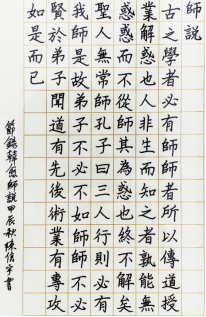 師說
古之學者必有師師者所以傳道授
業解惑也人非生而知之者孰能無
惑惑而不從師其為惑也終不解矣
聖人無常師孔子曰三人行則必有
我師是故弟子不必不如師師不必
賢於弟子聞道有先後術業有專攻
如是而已
節錄韓愈師說甲辰秋陳信宇書